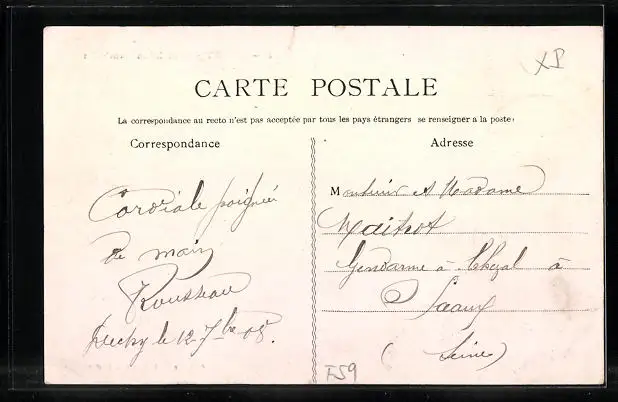 XP
CARTE POSTALE
La correspondance au recto n'est pas acceptée par tous les pays étrangers se renseigner a la poste
Correspondance
Adresse
Cordiale poignée
de main
Rousseau
le 12 7bre 08.
Monsieur et Madame
Gendarme à Cheval à
Sceaux
(Seine)
F59